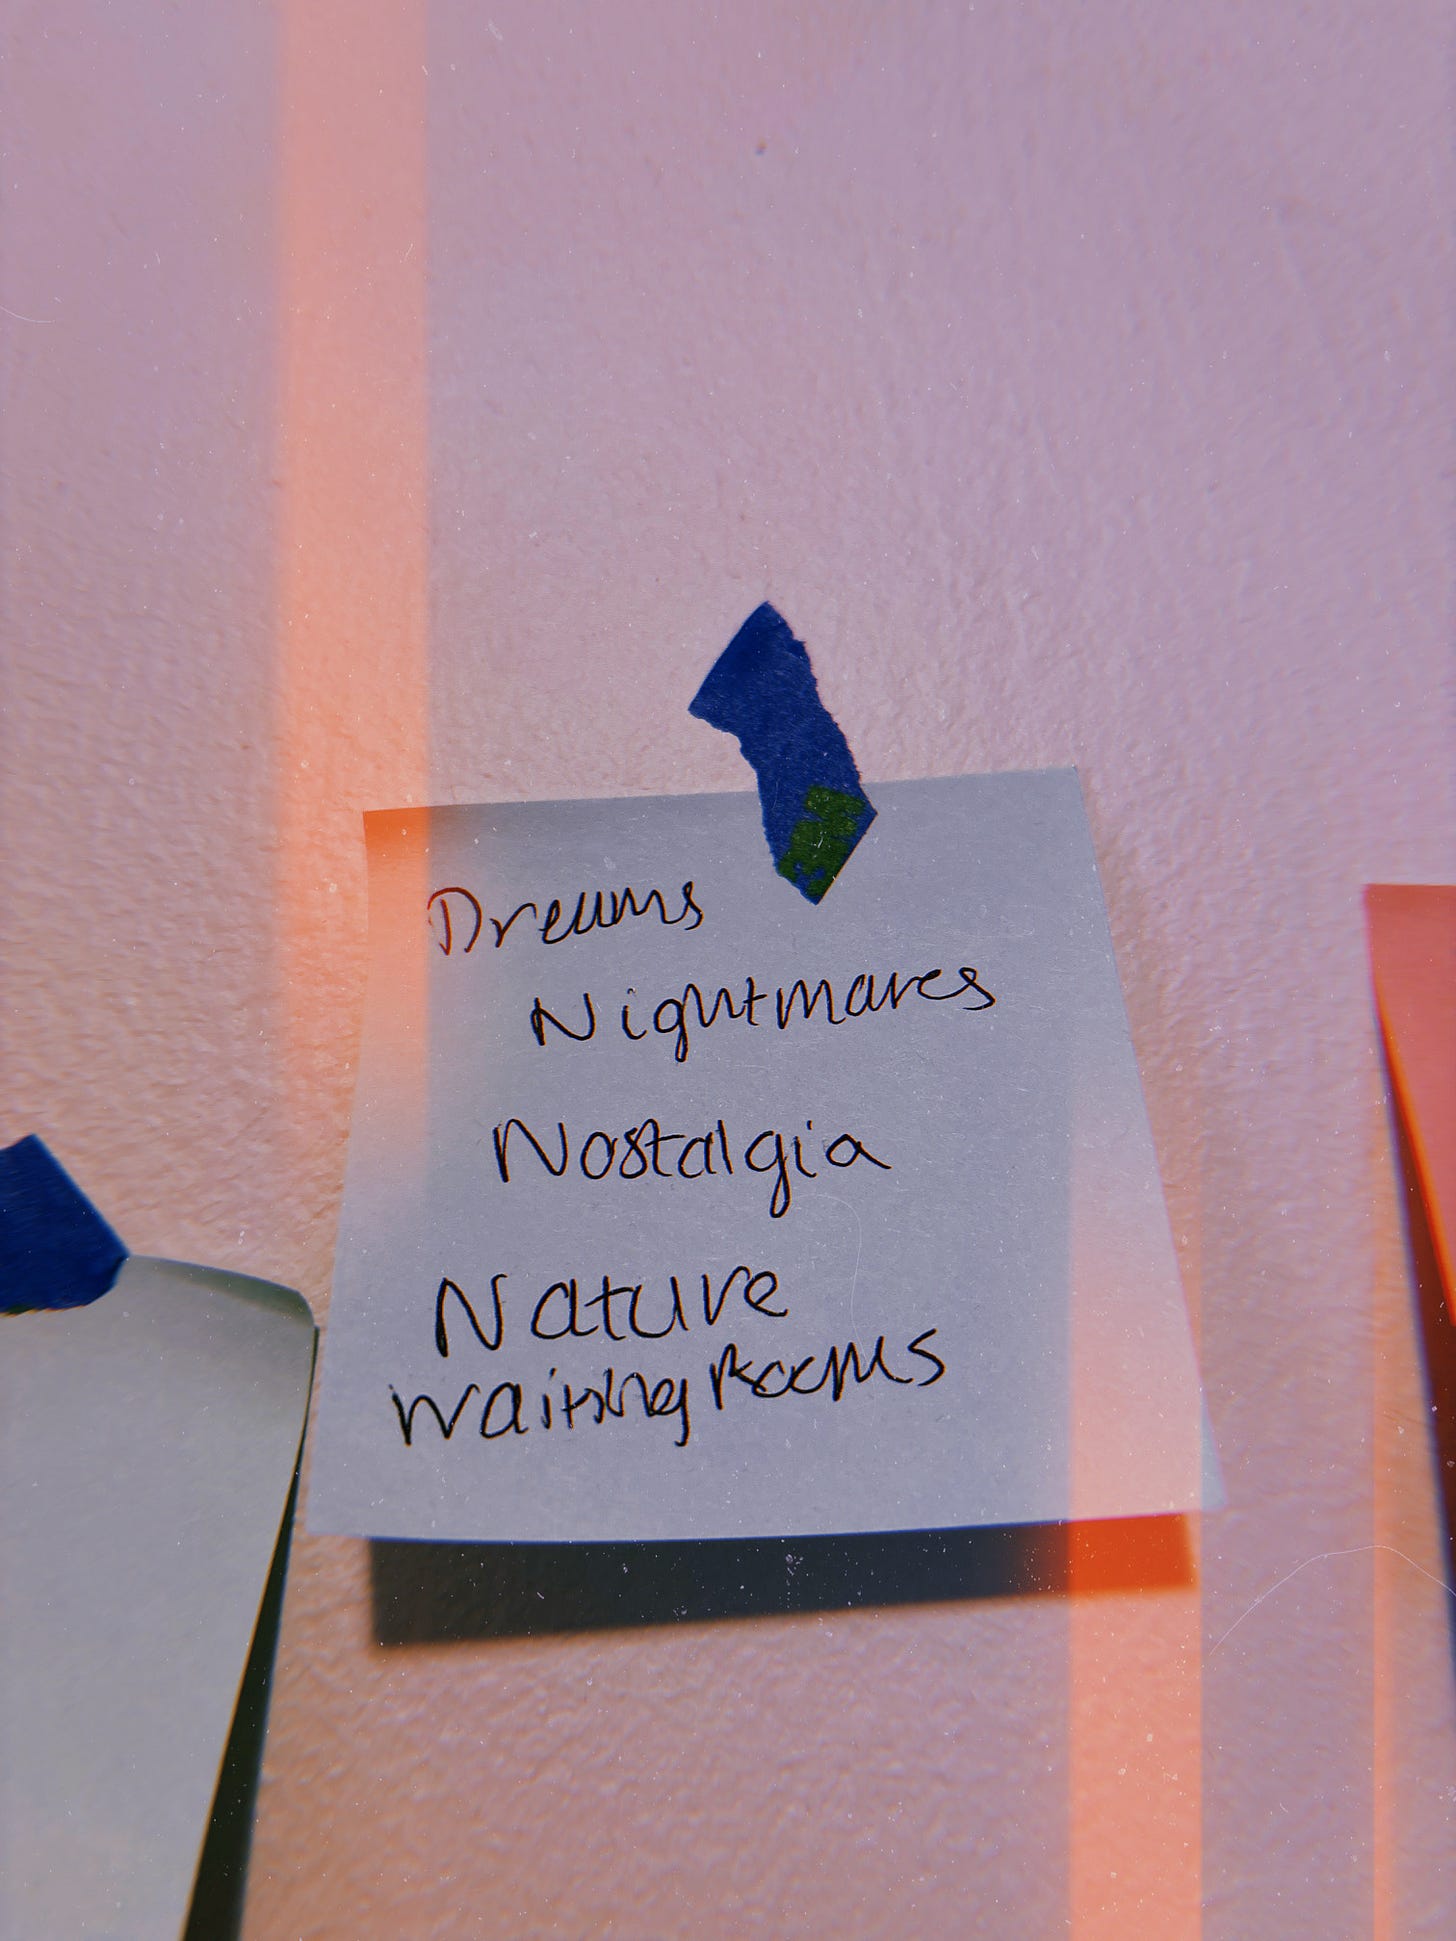 Dreams
Nightmares
Nostalgia
Nature
Waiting Rooms